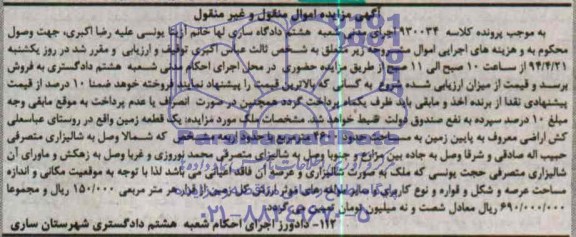 آگهی مزایده اموال منقول و غیر منقول
به موجب پرونده کلاسه ۹۳۰۰۳۴ اجرای مدنی شعبه هشتم دادگاه ساری لها خانم آزیتا یونسی علیه رضا اکبری، جهت وصول
محکوم به و هزینه های اجرایی اموال مشروحه زیر متعلق به شخص ثالث عباس اکبری توقیف و ارزیابی و مقرر شد در روز یکشنبه
۹۴/۴/۲۱ از ساعت ۱۰ صبح الی ۱۱ صبح از طریق مزایده حضوری در محل اجرای احکام مدنی شعبه هشتم دادگستری به فروش
برسد و قیمت از میزان ارزیابی شده شروع به کسانی که بالاترین قیمت را پیشنهاد نمایند فروخته خواهد ضمنا ۱۰ درصد از قیمت
پیشنهادی نقدا از برنده اخذ و مابقی باید ظرف یکماه پرداخت گردد همچنین در صورت انصراف یا عدم پرداخت به موقع مابقی وجه
مبلغ ۱۰ درصد سپرده به نفع صندوق دولت ضبط خواهد شد. مشخصات ملک مورد مزایده: یک قطعه زمین واقع در روستای عباسعلی
کش اراضی معروف به پایین زمین به مساحت حدود ۴۶۰۰ مترمربع با حدود اربعه مشخص که شمالا وصل به شالیزاری متصرفی
حبیب اله صادقی و شرقا وصل به جاده بین مزارع و جنوبا وصل به شالیزاری متصرفی محمد نوروزی و غربا وصل به زهکش و ماورای آن
شالیزاری متصرفی حجت یونسی که ملک به صورت شالیزاری و عرصه آن فاقد اعیانی می باشد لذا با توجه به موقعیت مکانی و اندازه
مساحت عرصه و شکل و قواره و نوع کاربری و سایر مولفه های موثر ارزش کل زمین از قرار هر متر مربعی ۱۵۰/۰۰۰ ریال و مجموعا
۶۹۰/۰۰۰/۰۰۰ ریال معادل شصت و نه میلیون تومان تعیین می گردد.
۱۱۲- دادورز اجرای احکام شعبه هشتم دادگستری شهرستان ساری
۰۲۱-۸۸۳۴۹۶۷۰-۵